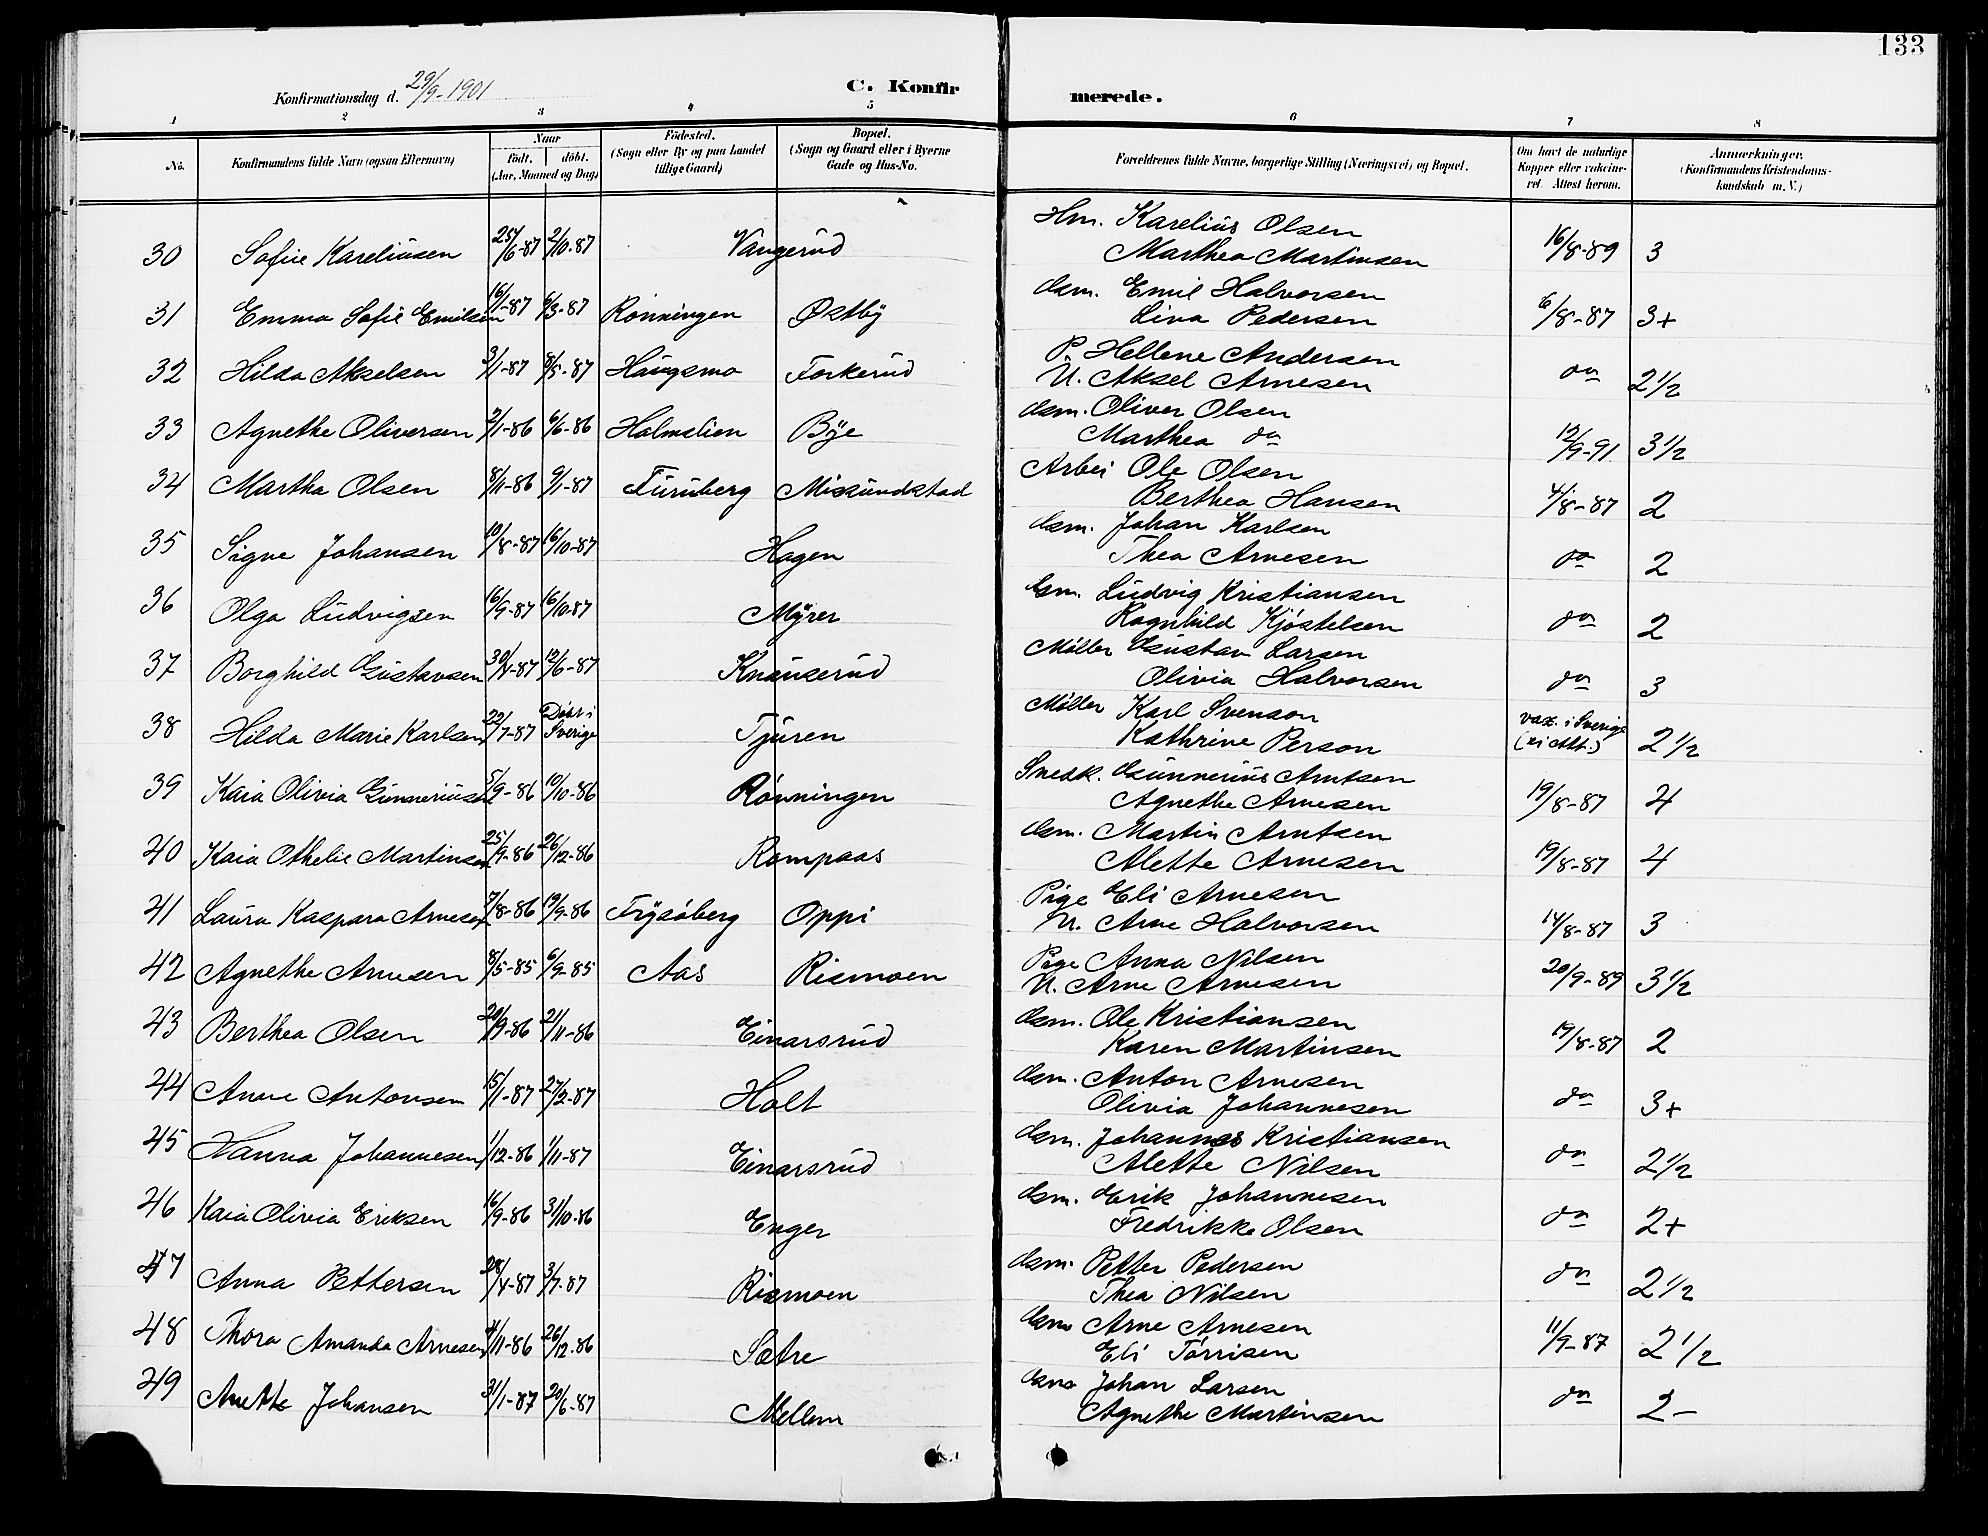 133
Konfirmationsdag d. 29/9-1901
C. Konfirmerede.
1 2 3 4 5 6 7 8
No. Konfirmandens fulde Navn (ogsaa Efternavn) Naar födt. döbt. (Aar, Maaned og Dag) Födested. (Sogn eller By og paa Landet tillige Gaard) Bopæl. (Sogn og Gaard eller i Byerne Gade og Hus-No. Forældrenes fulde Navne, borgerlige Stilling (Næringsvei) og Bopæl. Om havt de naturlige Kopper eller vakcineret. Attest herom. Anmærkninger. (Konfirmandens Kristendomskundskab m. V.)
30 Sofie Kareliusen 25/6-87 2/10-87 Vangerud Hm. Karelius Olsen 16/8-89 3
Marthea Martinsen
31 Emma Sofie Emilsen 16/1-87 6/3-87 Rønningen Østby Gsm. Emil Halvorsen 6/8-87 3+
Lina Pedersen
32 Hilda Akselsen 3/1-87 8/5-87 Haugsmo Forkerud P. Hellene Andersen do 2 1/2
U. Aksel Arnesen
33 Agnethe Oliversen 2/1-86 6/6-86 Holmslien Bye Gsm. Oliver Olsen 12/9-91 3 1/2
Marthea do
34 Martha Olsen 8/11-86 9/1-87 Furuberg Misundstad Arbei Ole Olsen 4/8-87 2
Berthea Hansen
35 Signe Johansen 19/8-87 16/10-87 Hagen Gsm. Johan Karlsen do 2
Thea Arnesen
36 Olga Ludvigsen 16/9-87 16/10-87 Myrer Gsm. Ludvig Kristiansen do 2
Ragnhild Kjøstelsen
37 Borghild Gustavsen 30/4-87 12/6-87 Knauserud Møller Gustav Larsen do 3
Olivia Halvorsen
38 Hilda Marie Karlsen 22/7-87 Døbt i Sverige Tjuren Møller Karl Svenson vax. i Sverige (ei Att.) 2 1/2
Kathrine Person
39 Kaia Olivia Gunneriusen 5/9-86 10/10-86 Rønningen Snedk. Gunnerius Arntsen 19/8-87 4
Agnethe Arnesen
40 Kaia Othelie Martinsen 25/9-86 26/12-86 Rompaas Gsm. Martin Arntsen 19/8-87 4
Alette Arnesen
41 Laura Kaspara Arnesen 7/8-86 19/9-86 Frysøberg Oppi Pige Eli Arnesen 14/8-87 3
U. Arne Halvorsen
42 Agnethe Arnesen 8/5-85 6/9-85 Aas Rismoen Pige Anna Nilsen 20/9-89 3 1/2
U. Arne Arnesen
43 Berthea Olsen 20/9-86 21/11-86 Einarsrud Gsm. Ole Kristiansen 19/8-87 2
Karen Martinsen
44 Anne Antonsen 15/1-87 27/2-87 Holt Gsm. Anton Arnesen do 3+
Olivia Johannesen
45 Hanna Johannesen 1/12-86 1/11-87 Einarsrud Gsm. Johannes Kristiansen do 2 1/2
Alette Nilsen
46 Kaia Olivia Eriksen 16/9-86 31/10-86 Enger Gsm. Erik Johannesen do 2+
Fredrikke Olsen
47 Anna Pettersen 28/4-87 3/7-87 Rismoen Gsm. Petter Pedersen do 2 1/2
Thea Nilsen
48 Thora Amanda Arnesen 4/11-86 26/12-86 Sætre Gsm Arne Arnesen 11/9-87 2 1/2
Eli Tørrisen
49 Anette Johansen 31/1-87 20/6-87 Mellem Gsm Johan Larsen do 2-
Agnethe Martinsen